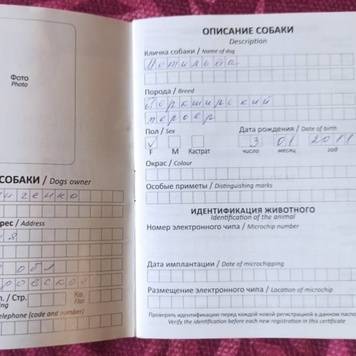 Фото
Photo
СОБАКИ / Dogs owner
рес / Address
л. / Стр.
Кв.
Flat
telephone (code and number)
ОПИСАНИЕ СОБАКИ
Description
Кличка собаки / Name of dog
Порода / Breed
Йоркширский
терьер
Пол / Sex
Дата рождения / Date of birth
F M Кастрат
3 01 2011
число месяц год
Окрас / Colour
Особые приметы / Distinguishing marks
ИДЕНТИФИКАЦИЯ ЖИВОТНОГО
Identification of the animal
Номер электронного чипа / Microchip number
Дата имплантации / Date of microchipping
Размещение электронного чипа / Location of microchip
Проверить идентификацию перед каждой новой регистрацией в данном паспо
Verify the identification before each new registration in this certificate